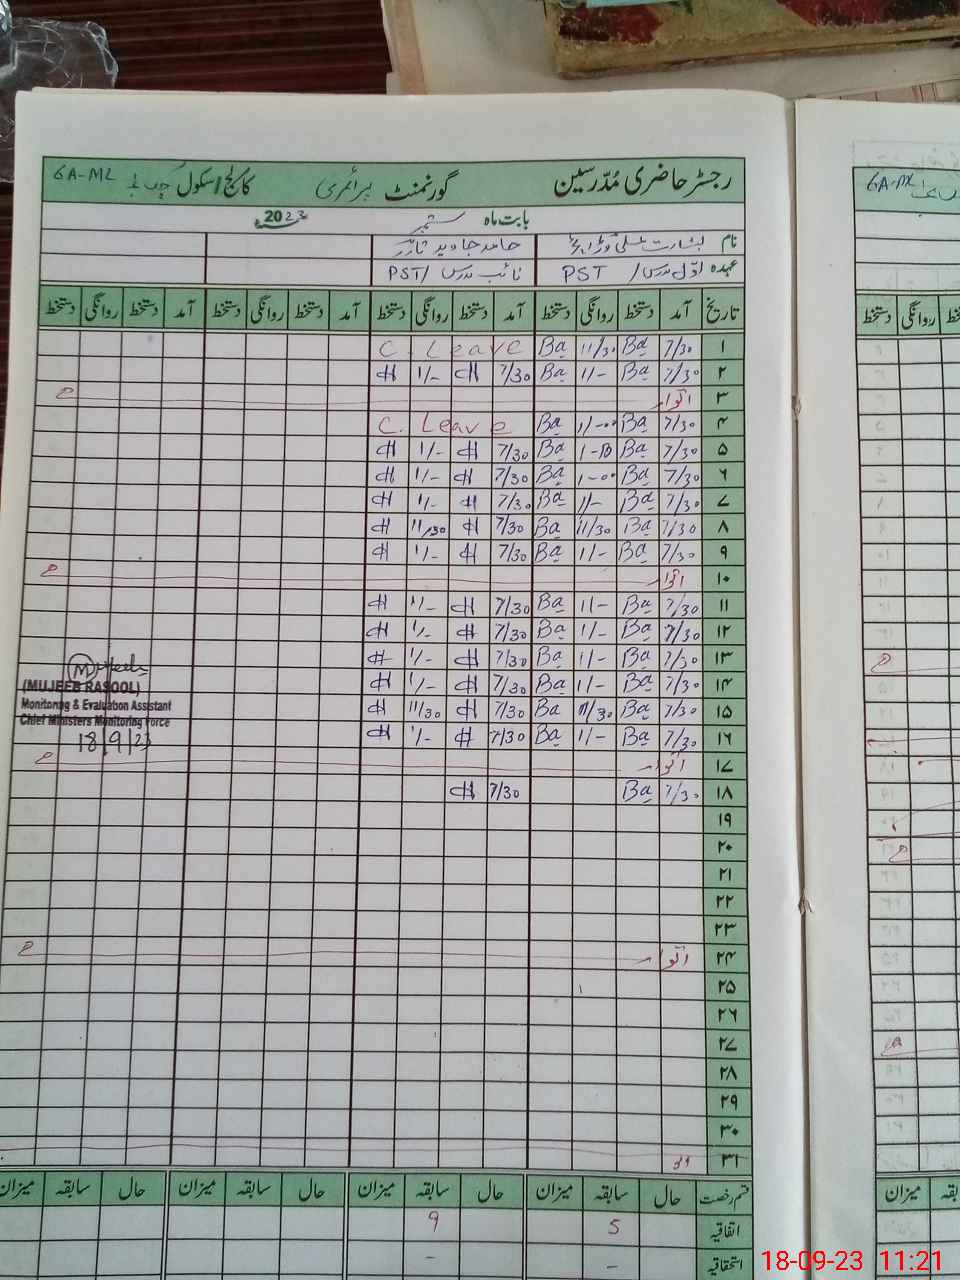 رجسٹر حاضری مُدّرسین گورنمنٹ پرائمری کالج / اسکول 6A-ML
بابت ماہ ستمبر 2023
نام بشارت علی حامد جاوید
عہدہ اوّل مدرس / PST نائب مدرس / PST
تاریخ آمد دستخط روانگی دستخط آمد دستخط روانگی دستخط آمد دستخط روانگی دستخط آمد دستخط روانگی دستخط
۱ 7/30 Ba 11/30 Ba C. Leave
۲ 7/30 Ba 1/- Ba 7/30 H 1/- H
۳ اتوار
۴ 7/30 Ba 1/-00 Ba C. Leave
۵ 7/30 Ba Ba 7/30 H 1/- H
۶ 7/30 Ba 1-00 Ba 7/30 H 1/- H
۷ 7/30 Ba 1/- Ba 7/30 H 1/- H
۸ 7/30 Ba 11/30 Ba 7/30 H 11/30 H
۹ 7/30 Ba 1/- Ba 7/30 H 1/- H
۱۰ اتوار
۱۱ 7/30 Ba 1/- Ba 7/30 H 1/- H
۱۲ 7/30 Ba 1/- Ba 7/30 H 1/- H
۱۳ 7/30 Ba 1/- Ba 7/30 H 1/- H
۱۴ 7/30 Ba 1/- Ba 7/30 H 1/- H
۱۵ 7/30 Ba 11/30 Ba 7/30 H 11/30 H
۱۶ 7/30 Ba 1/- Ba 7/30 H 1/- H
۱۷ اتوار
۱۸ 7/30 Ba 7/30 H
۱۹
۲۰
۲۱
۲۲
۲۳
۲۴ اتوار
۲۵
۲۶
۲۷
۲۸
۲۹
۳۰
۳۱
Mujeeb
(MUJEEB RASOOL)
Monitoring & Evaluation Assistant
Chief Ministers Monitoring Force
18/9/23
قسم رخصت حال سابقہ میزان حال سابقہ میزان حال سابقہ میزان حال سابقہ میزان
اتفاقیہ 5 9
استحقاقیہ - -
دستخط روانگی
میزان
18-09-23 11:21